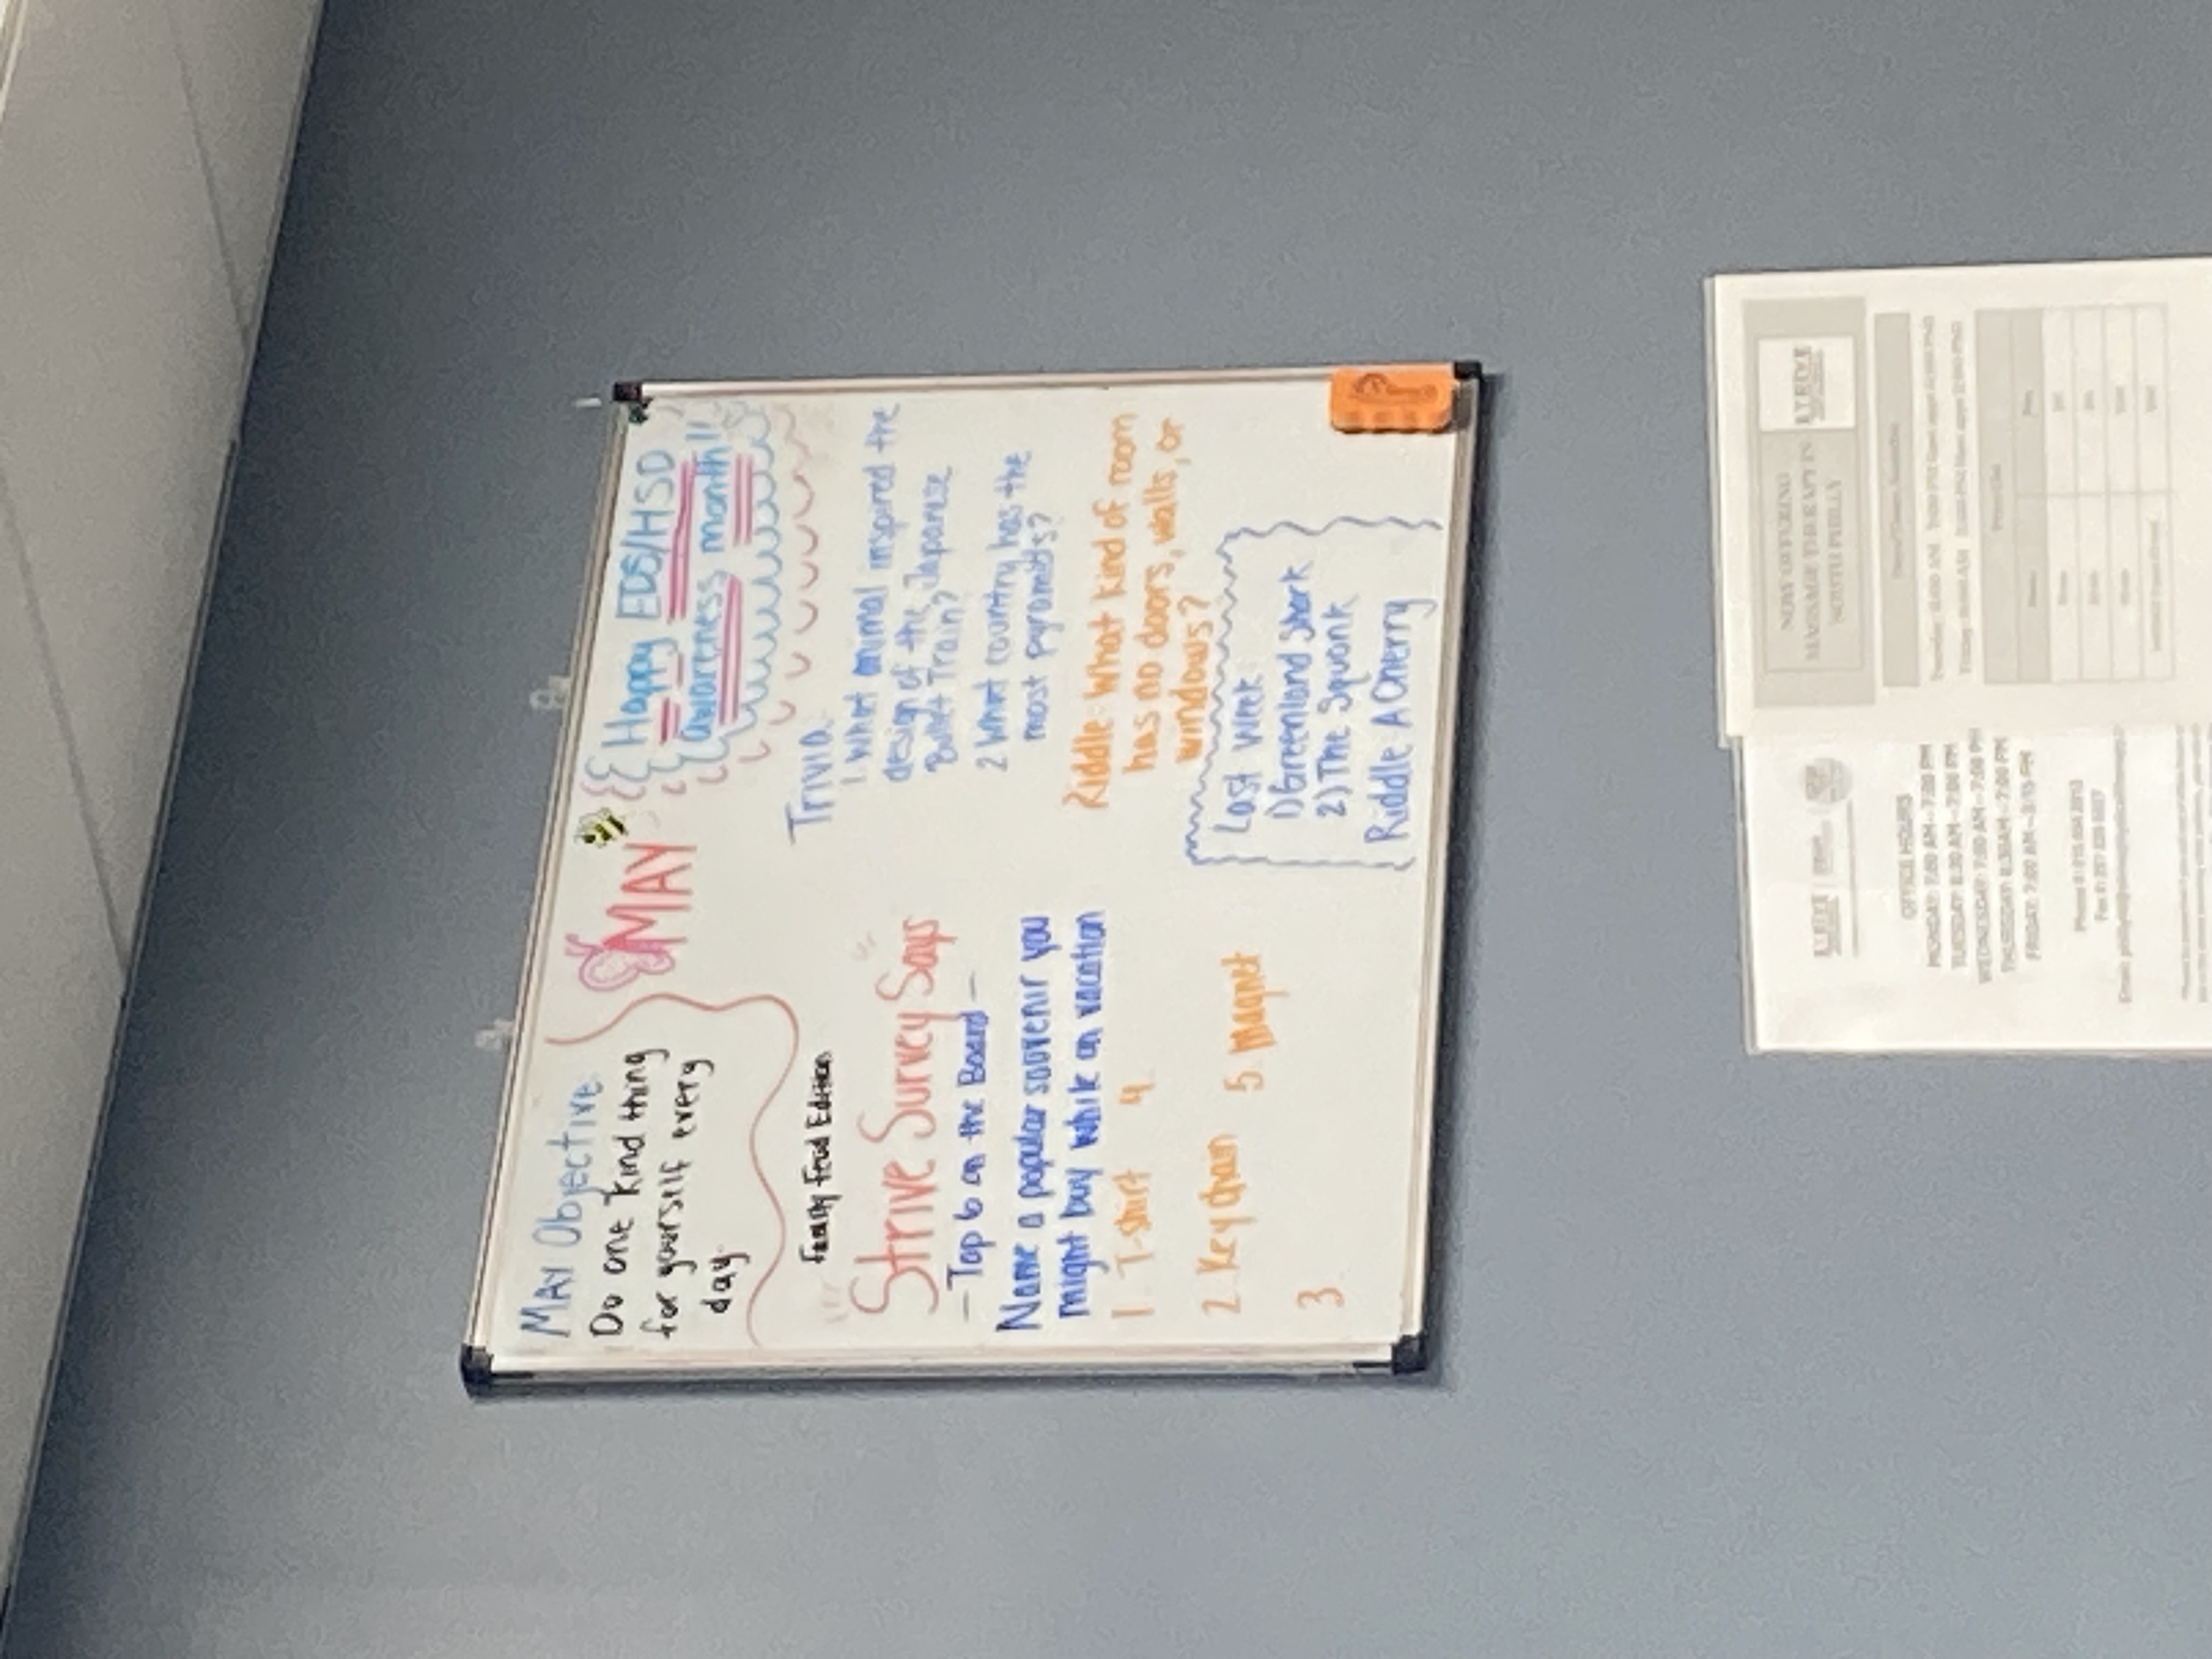 MAY Objective:
Do one kind thing
for yourself every
day.
MAY
Happy EDS/HSD
awareness month!!
Family Feud Edition
Strive Survey Says
- Top 6 on the Board -
Name a popular souvenir you
might buy while on vacation
1. T-shirt 4.
2. Key chain 5. Magnet
3.
Trivia:
1. What animal inspired the
design of the Japanese
Bullet Train?
2. What country has the
most pyramids?
Riddle: What kind of room
has no doors, walls, or
windows?
Last week:
1) Greenland Shark
2) The Squonk
Riddle: A Cherry
OFFICE HOURS
MONDAY: 7:00 AM-7:00 PM
TUESDAY: 8:30 AM-7:00 PM
WEDNESDAY: 7:00 AM-7:00 PM
THURSDAY: 8:30AM-7:00 PM
FRIDAY: 7:00 AM-3:15 PM
NOW OFFERING
MASSAGE THERAPY IN
SOUTH PHILLY
STRIVE